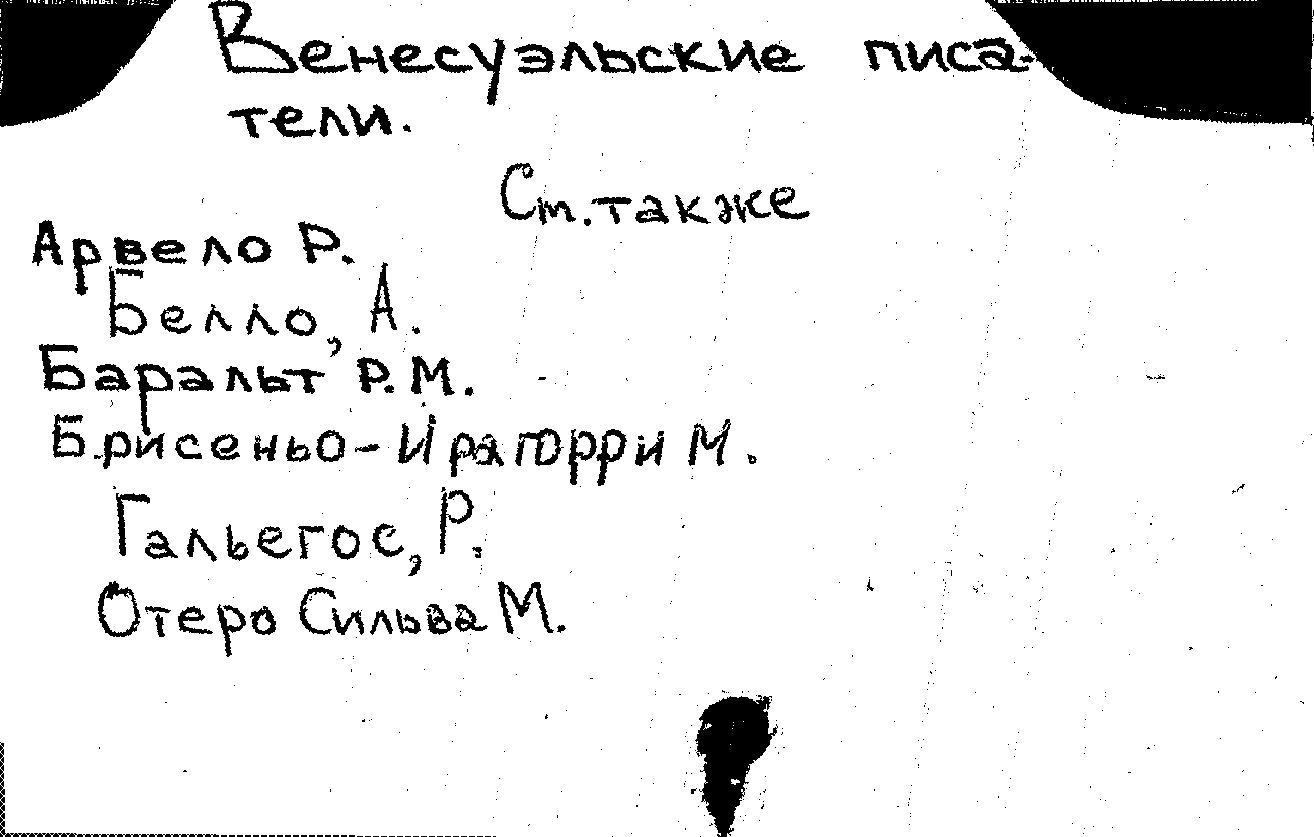 Венесуэльские писа-
тели.
См. также
Арвело Р.
Белло, А.
Баральт Р.М.
Брисеньо-Ирагорри М.
Гальегос, Р.
Отеро Сильва М.